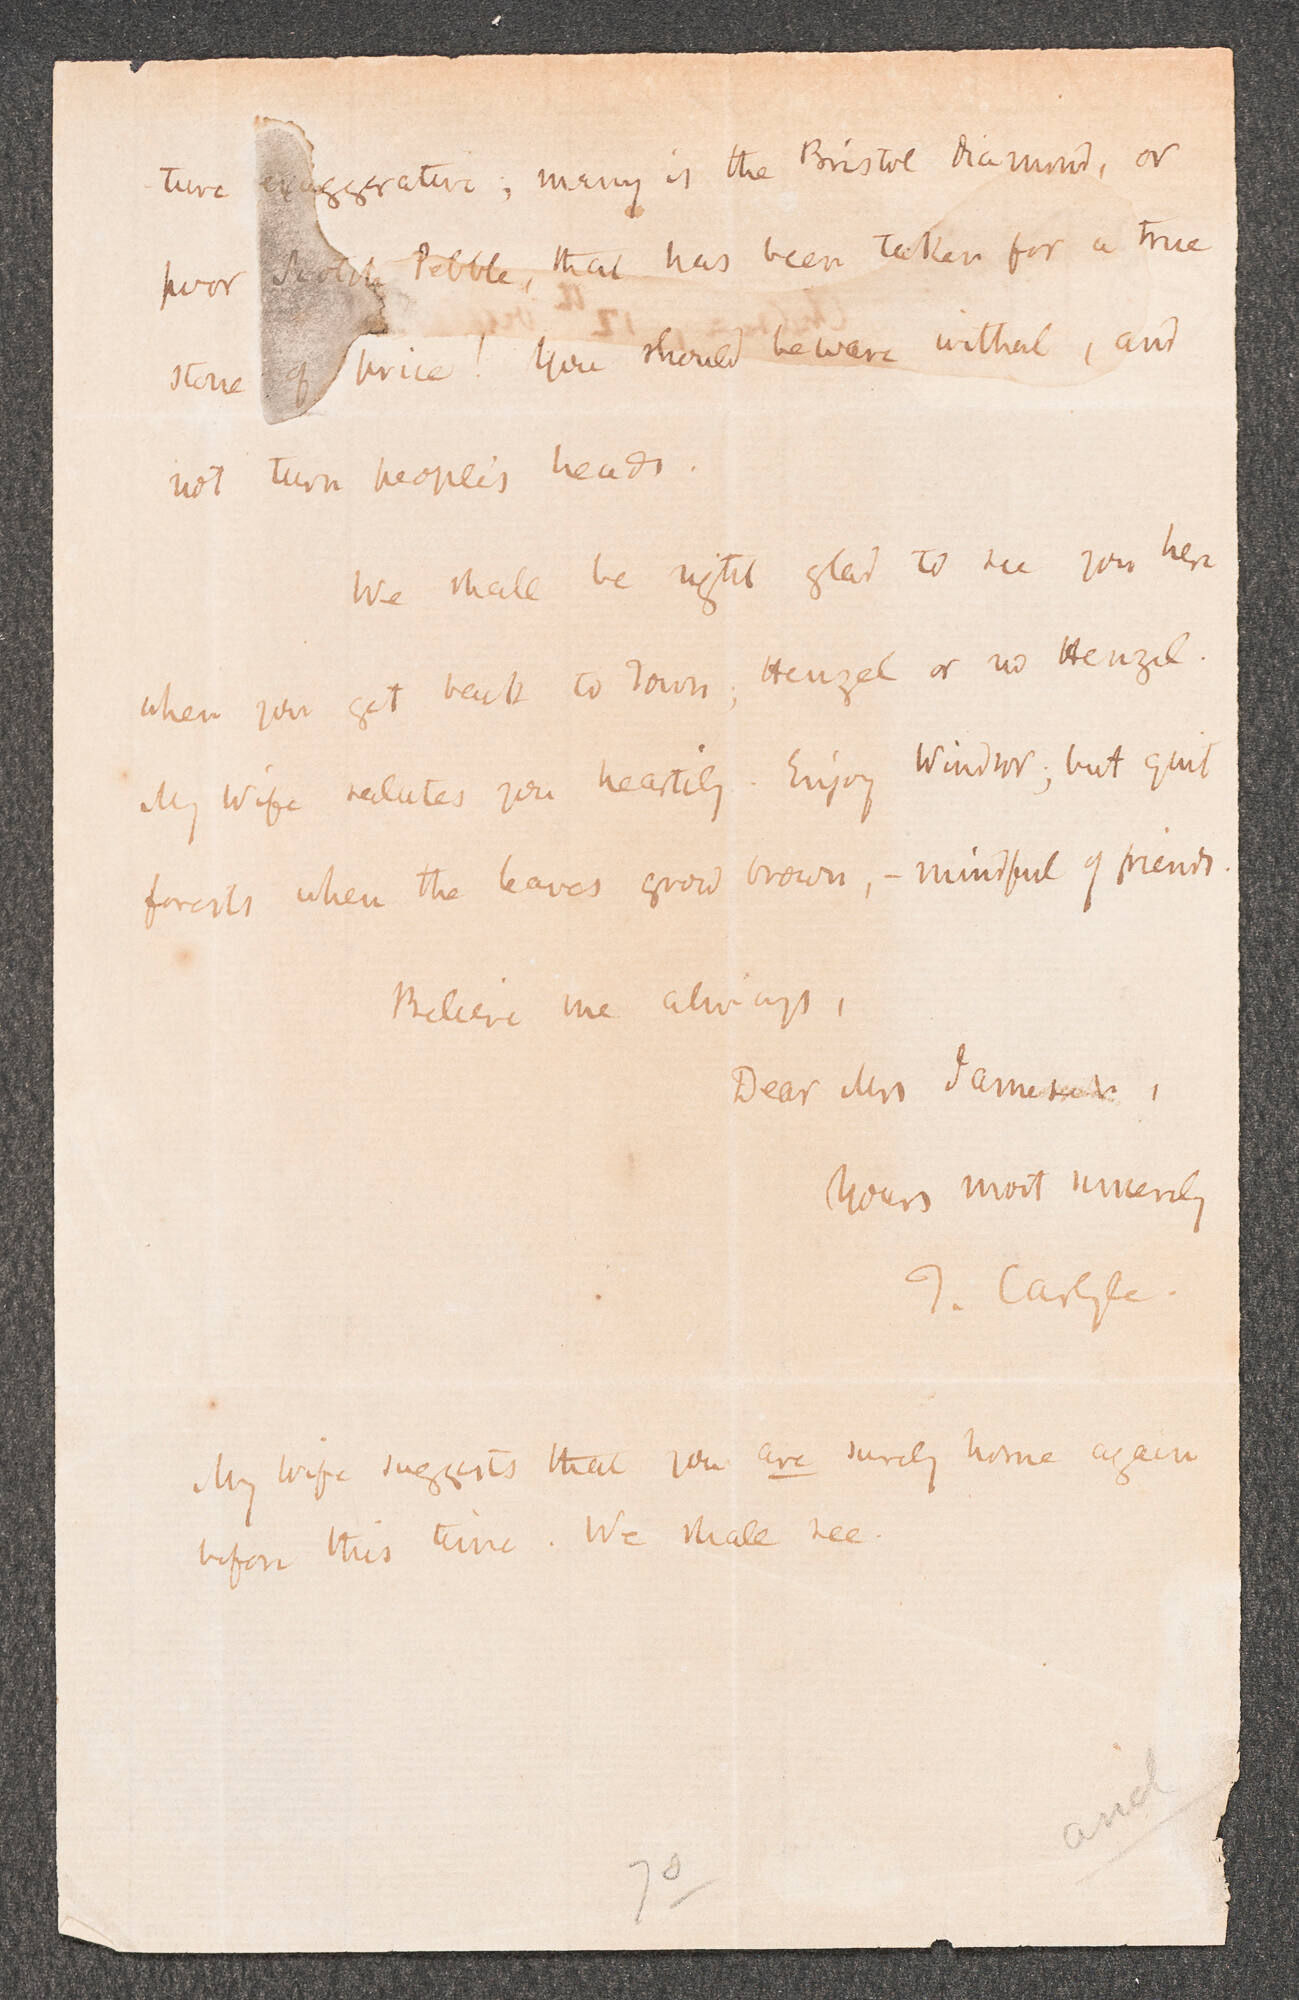 ture exaggerative; many is the Bristol Diamond, or
poor Scotch Pebble, that has been taken for a true
stone of price! You should beware withal, and
not turn people's heads.
We shall be right glad to see you here
when you get back to Town; Henzel or no Henzel.
My Wife salutes you heartily. Enjoy Windsor; but quit
forests when the leaves grow brown, – mindful of friends.
Believe me always,
Dear Mrs Jameson,
Yours most sincerely
T. Carlyle.
My Wife suggests that you are surely home again
before this time. We shall see.
and
70